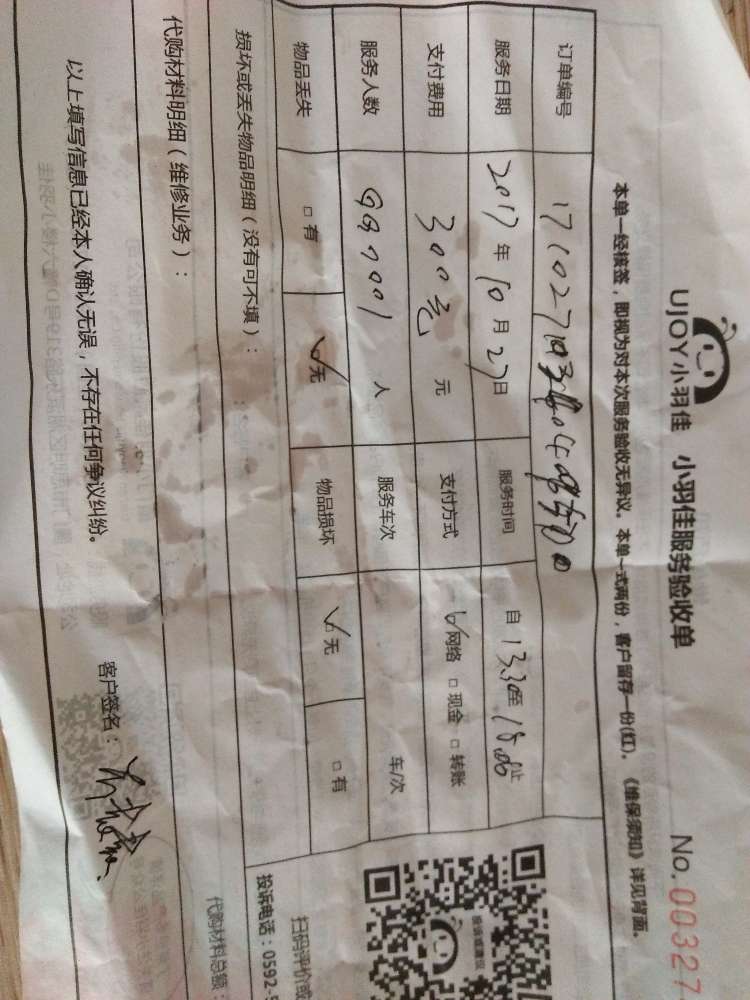 UJOY小羽佳 小羽佳服务验收单 No.00327
本单一经核签，即视为对本次服务验收无异议。本单一式两份，客户留存一份(红)。《维保须知》详见背面。
订单编号
服务日期 2017 年 10 月 27 日 服务时间 自 13.30 至 15.00 止
支付费用 300元 元 支付方式 ☑网络 □现金 □转账
服务人数 人 服务车次 车/次
物品丢失 □有 ☑无 物品损坏 ☑无 □有
损坏或丢失物品明细（没有可不填）：
扫码评价或
投诉电话：0592-5
代购材料明细（维修业务）：
代购材料总额：
以上填写信息已经本人确认无误，不存在任何争议纠纷。
客户签名：